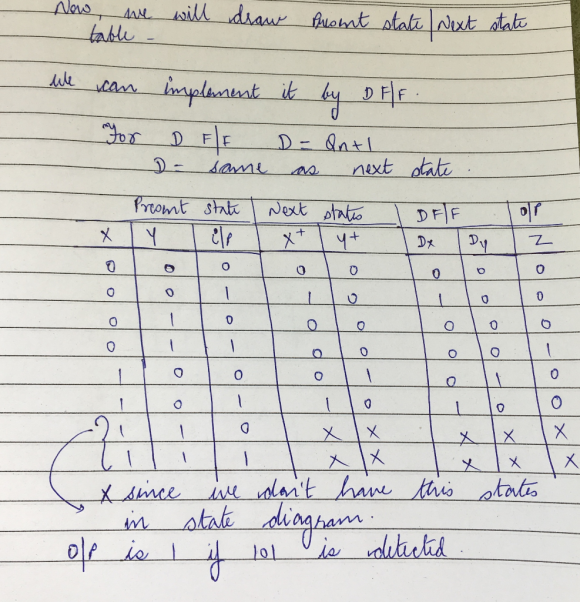 Now, we will draw Present state | Next state
table -
We can implement it by D F/F.
For D F/F D = Qn+1
D = same as next state.
Present state | Next states | D F/F | O/P
X Y i/P X+ Y+ Dx Dy Z
0 0 0 0 0 0 0 0
0 0 1 1 0 1 0 0
0 1 0 0 0 0 0 0
0 1 1 0 0 0 0 1
1 0 0 0 1 0 1 0
1 0 1 1 0 1 0 0
1 1 0 X X X X X
1 1 1 X X X X X
X since we don't have this states
in state diagram.
O/P is 1 if 101 is detected.